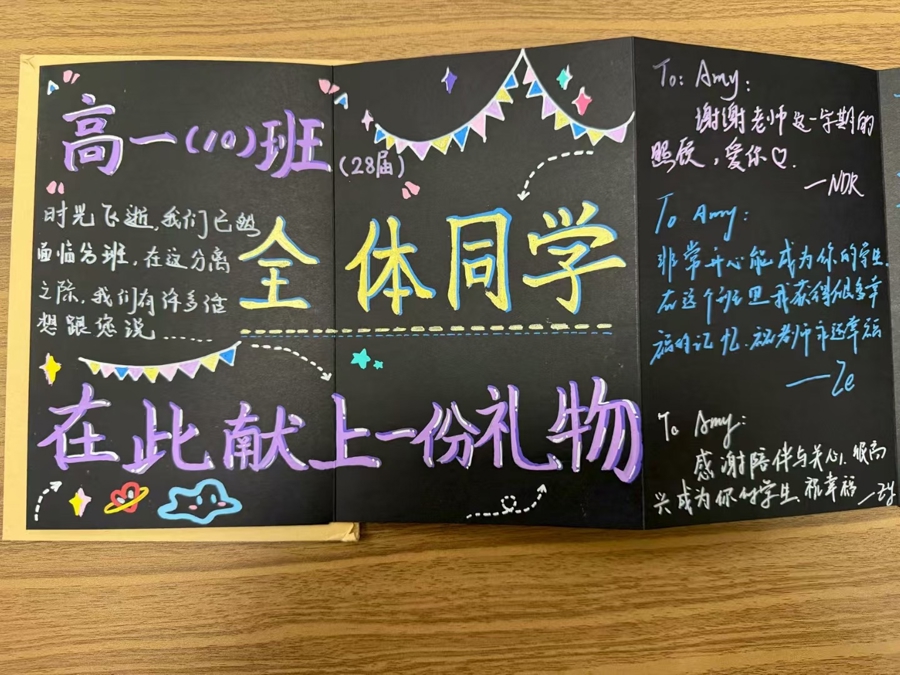 高一(10)班
(28届)
时光飞逝,我们已经
面临分班,在这分离
之际,我们有许多话
想跟您说......
全体同学
在此献上一份礼物
To: Amy:
谢谢老师这一学期的
照顾,爱你♡.
—NDR
To Amy:
非常开心能成为你的学生.
在这个班里我获得很多幸
福的记忆.祝老师永远幸福
——Ze
To Amy:
感谢陪伴与关心.很高
兴成为你的学生.祝幸福—ZY